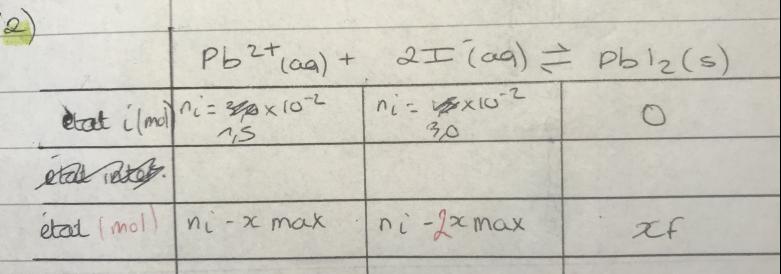 2)
Pb²⁺(aq) + 2I⁻(aq) ⇌ PbI₂(s)
état i(mol) ni = x10⁻² ni = x10⁻² 0
1,5 3,0
état
état (mol) ni - x max ni - 2x max xf